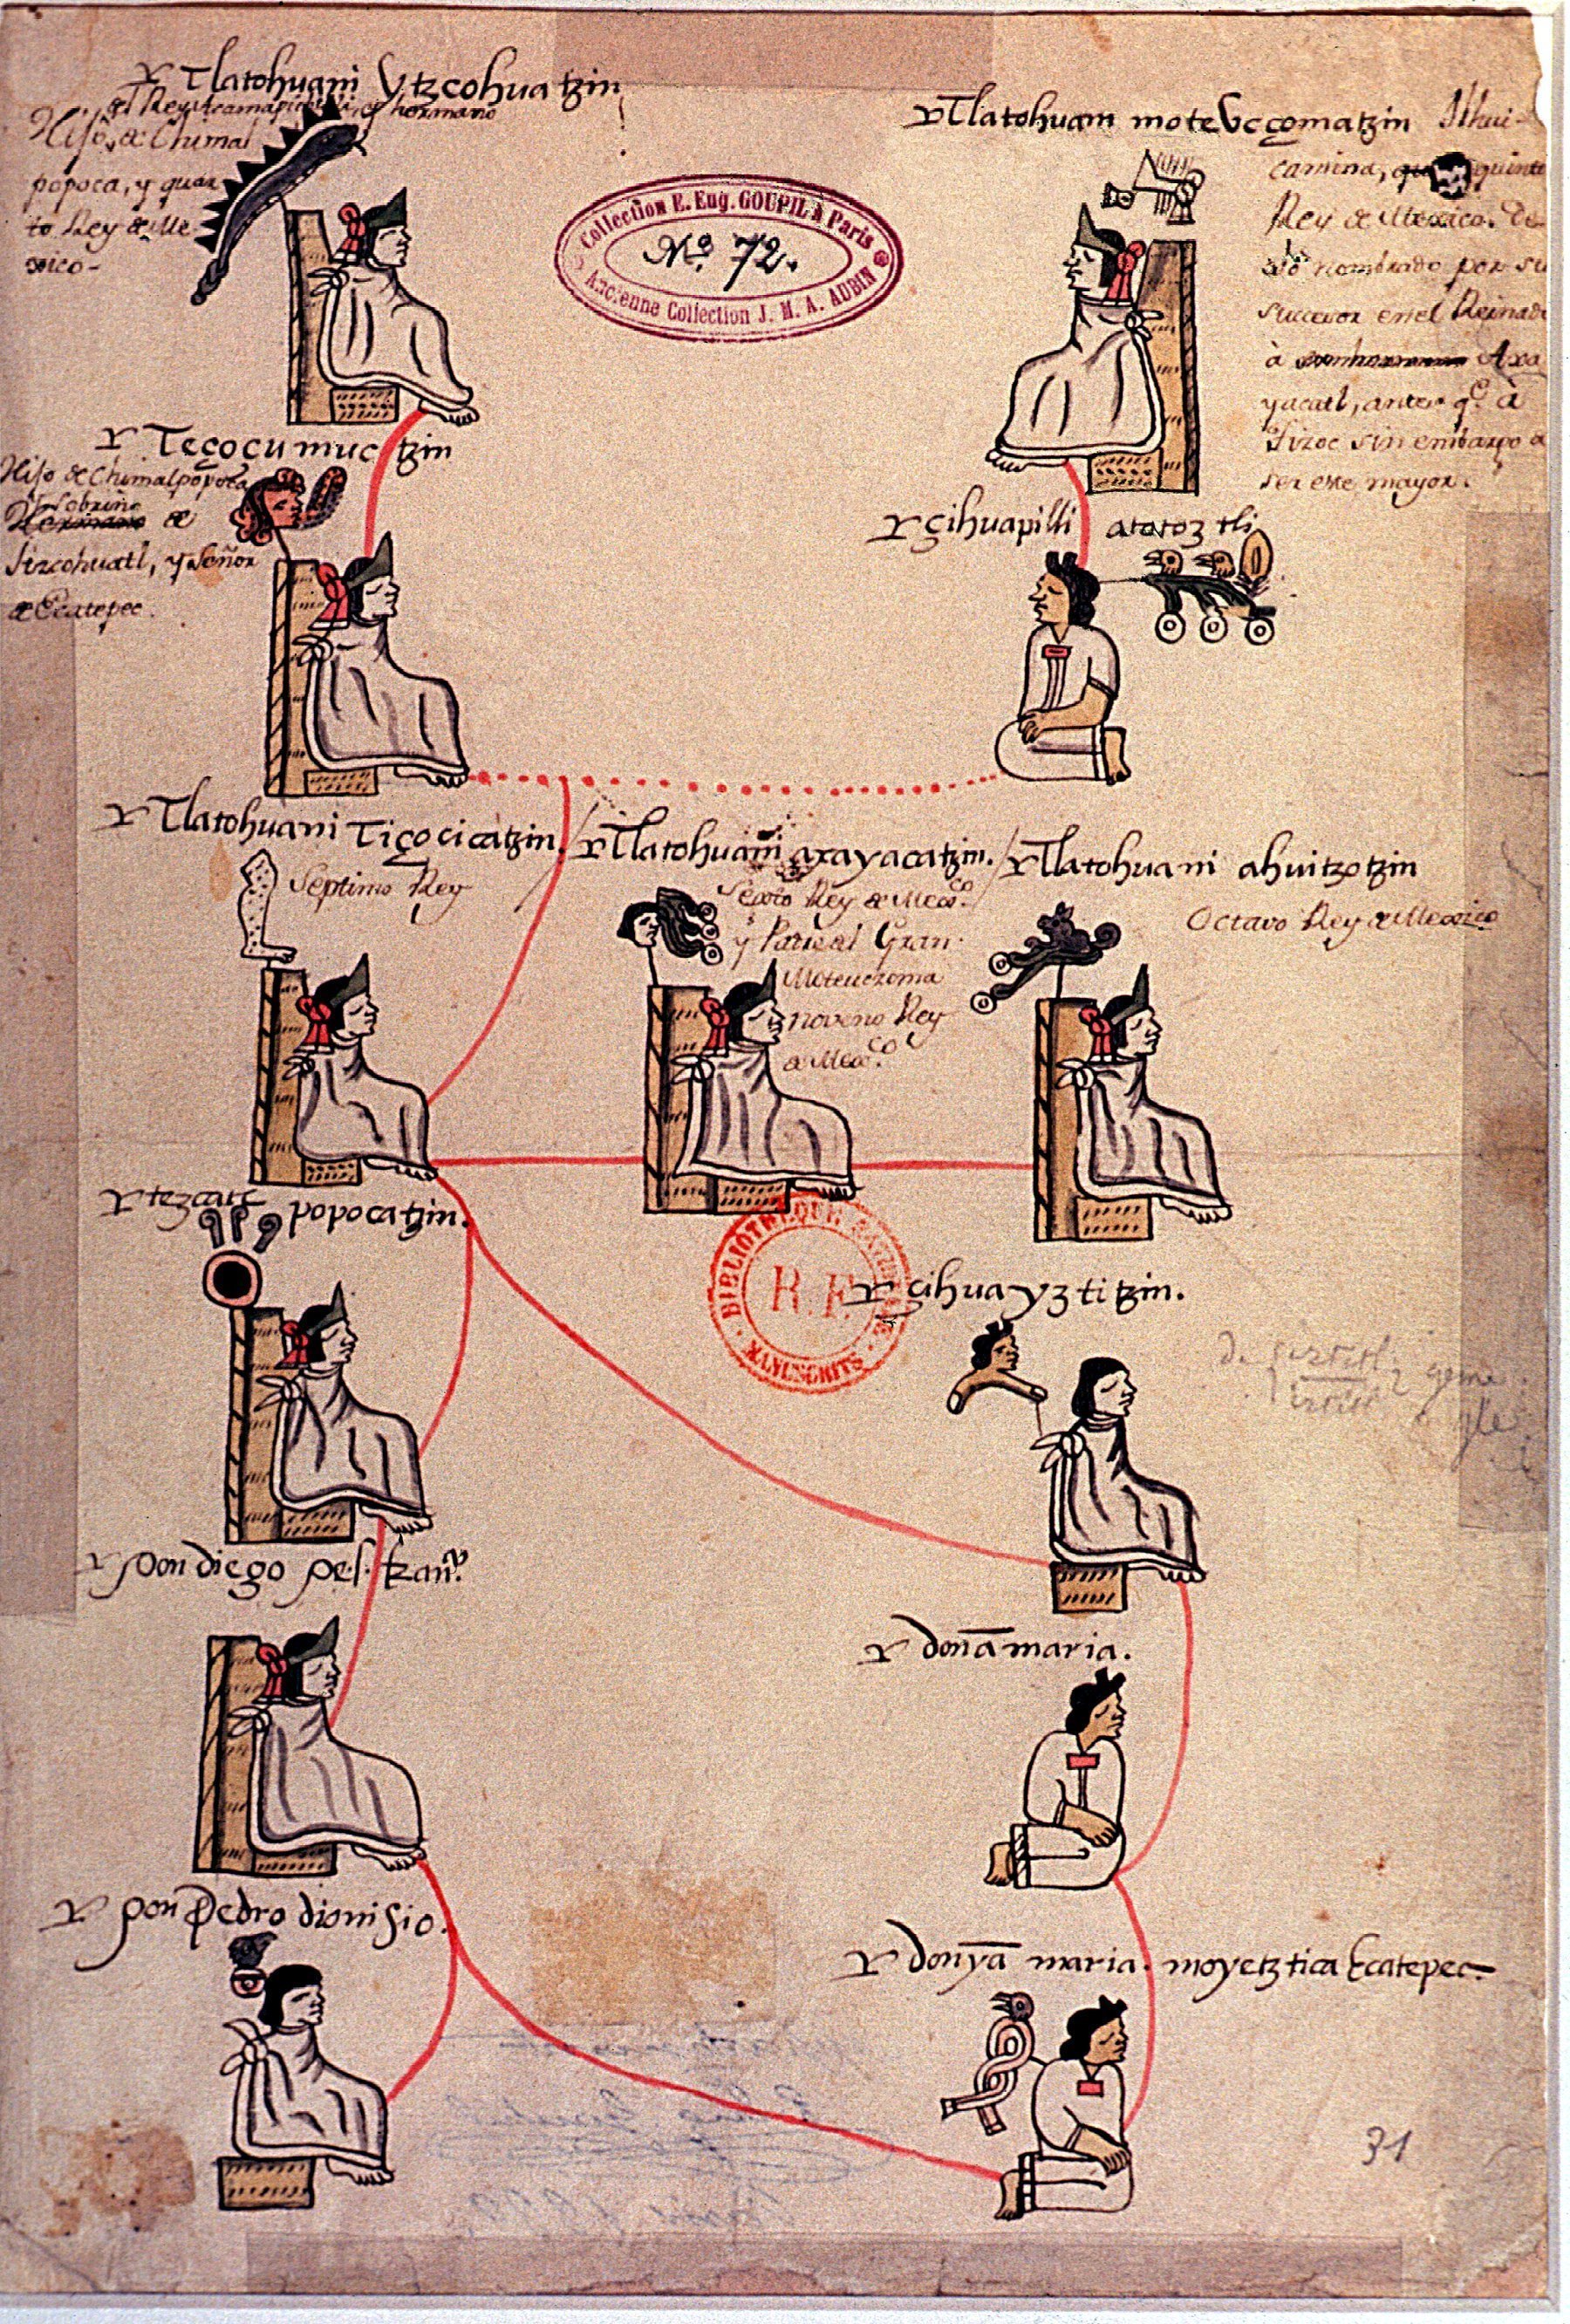 Tlatohuani Ytzcohuatzin
hermano
Hijo de Chimal
popoca, y quar
to Rey de Me
xico-
Collection E. Eug. GOUPIL à Paris
No. 72.
Ancienne Collection J. M. A. AUBIN
Tlatohuani moteucçomatzin Ilhui-
camina, quinto
Rey de Mexico. De
nombrado por su
succesor en el Reinado
à Axa
yacatl, antes qe. à
Tizoc sin embargo de
ser este mayor.
Teçocumuctzin
Hijo de Chimalpopoca
sobrino
Hermano de
Itzcohuatl, y Señor
de Ecatepec.
çihuapilli atotoztli
Tlatohuani Tiçocicatzin.
Septimo Rey
Tlatohuani axayacatzin.
Sexto Rey de Mexco.
y Padre del Gran
Moteuczoma
noveno Rey
de Mexco.
Tlatohuani ahuitzotzin
Octavo Rey de Mexico
tezcatl popocatzin.
BIBLIOTHEQUE NATIONALE
R.F.
MANUSCRITS
çihuayztitzin.
Don diego
doña maria.
Don Pedro dionisio.
donya maria. moyetztica Ecatepec.
31